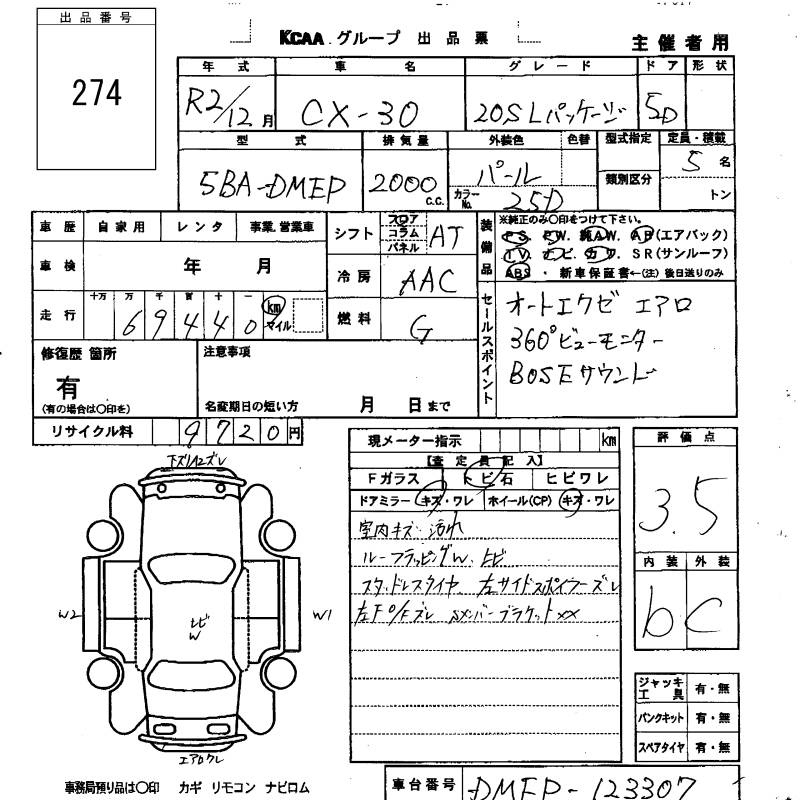 出品番号
274
KCAA グループ 出品票
主催者用
年式 車名 グレード ドア 形状
R2/12月 CX-30 20S Lパッケージ 5D
型式 排気量 外装色 色替 型式指定 定員・積載
5BA-DMEP 2000 C.C. パール 類別区分 5名
カラーNo. 25D トン
車歴 自家用 レンタ 事業.営業車
シフト フロア コラム パネル AT
装備品 ※純正のみ〇印をつけて下さい。
PS. PW. 純AW. AB(エアバック)
TV. ナビ. カワ. SR(サンルーフ)
ABS ・ 新車保証書←(注)後日送りのみ
車検 年 月
冷房 AAC
走行 十万 万 千 百 十 一
69440 km マイル
燃料 G
セールスポイント
オートエクゼ エアロ
360°ビューモニター
BOSEサウンド
修復歴 箇所
有
(有の場合は〇印を)
注意事項
名変期日の短い方 月 日まで
リサイクル料 9720円
現メーター指示 km
【査定員記入】
Fガラス トビ石 ヒビワレ
ドアミラー キズ・ワレ ホイール(CP) キズ・ワレ
室内キズ 汚れ
ルーフラッピングW. ヒビ
スタッドレスタイヤ 左サイドスポイラーズレ
左F º/Fズレ Sメンバーブラケットxx
評価点
3.5
内装 外装
b C
下ズリA2ズレ
W2
ヒビ
W
W1
エアロワレ
ジャッキ工具 有・無
パンクキット 有・無
スペアタイヤ 有・無
事務局預り品は〇印 カギ リモコン ナビロム
車台番号 DMEP-123307